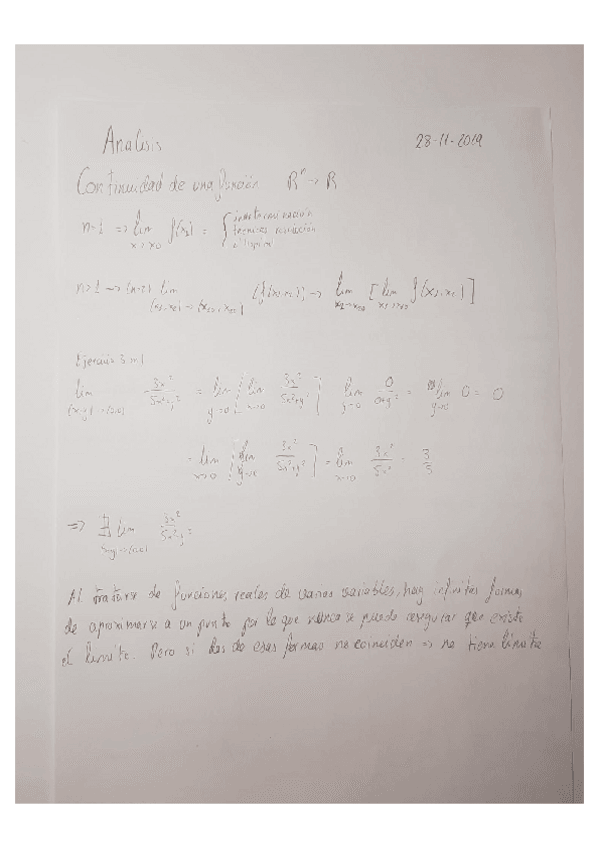 Analisis 28-11-2019
Continuidad de una función R^n → R
n=1 ⇒ lim x→x0 f(x) = { indeterminación
técnicas resolución
L'Hopital
n>1 → (n=2) lim (x1,x2)→(x10,x20) (f(x1,x2)) → lim x2→x20 [lim x1→x10 f(x1,x2)]
Ejercicio 3
lim (x,y)→(0,0) 3x²/5x²+y² = lim y→0 [lim x→0 3x²/5x²+y²] lim y→0 0/0+y² = lim y→0 0 = 0
= lim x→0 [lim y→0 3x²/5x²+y²] = lim x→0 3x²/5x² = 3/5
⇒ ∄ lim (x,y)→(0,0) 3x²/5x²+y²
Al tratarse de funciones reales de varias variables, hay infinitas formas
de aproximarse a un punto por lo que nunca se puede asegurar que existe
el limite. Pero si dos de esas formas no coinciden ⇒ no tiene limite